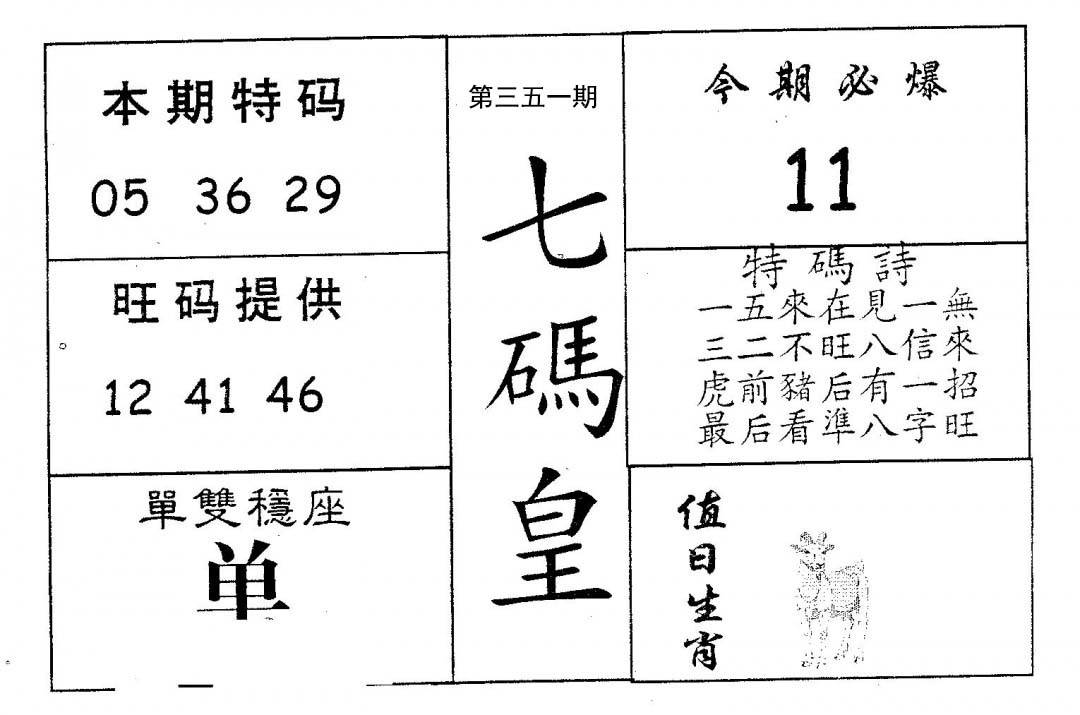 本期特码
05 36 29
旺码提供
12 41 46
單雙穩座
单
第三五一期
七碼皇
今期必爆
11
特碼詩
一五來在見一無
三二不旺八信來
虎前豬后有一招
最后看準八字旺
值日生肖